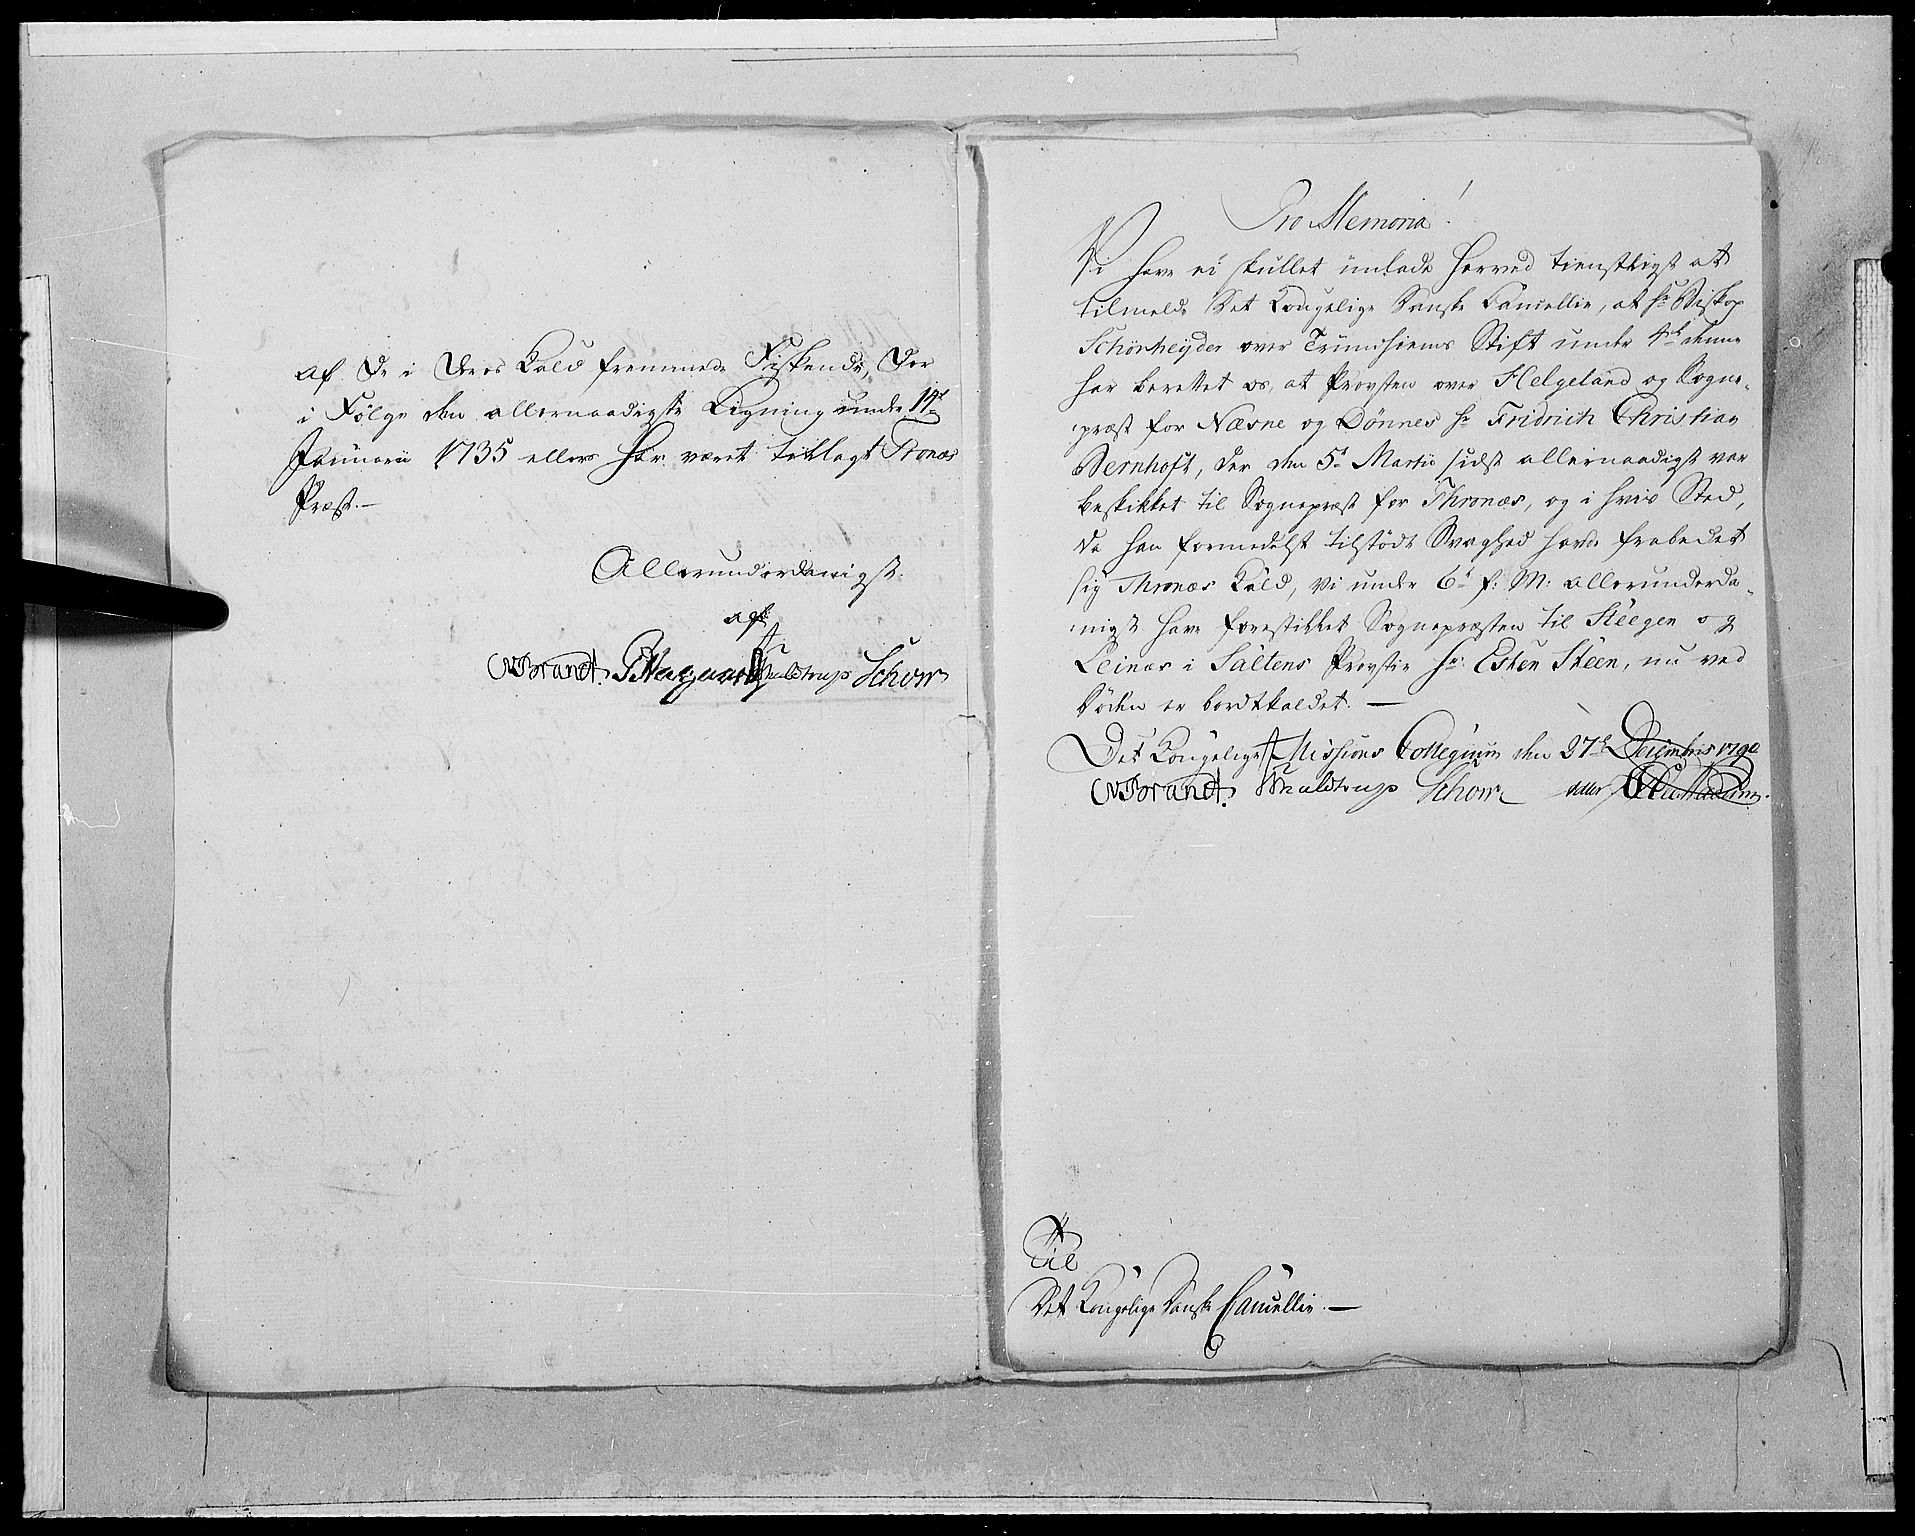 af de i deres Kald fremmede Fiskende, der
i Følge den allernaadigste Ligning under 14de
Januarii 1735 ellers har været tillagt Tronæs
Præst.-
Allerunderdanigst.
af
Brandt. Schow
Pro Memoria!
Vi have ei skullet undlade herved tienstligst at
tilmelde Det Kongelige Danske Cancellie, at Hr Biskop
Schönheyder over Trundhiems Stift under 4de denne
har berettet os, at Provsten over Helgeland og Sogne-
præst for Næsne og Dönnes Hr Fridrich Christian
Bernhoft, der den 5te Martii sidst allernaadigst var
beskikket til Sognepræst for Thronæs, og i hvis Sted,
da han formedelst tilstödt Svaghed havde frabedet
sig Thronæs Kald, vi under 6te f: M: allerunderda-
nigst have forestillet Sognepræsten til Steegen og
Leinæs i Saltens Provstie Hr. Esten Steen, nu ved
Döden er bortkaldet. -
Det Kongelige Missions Collegium den 27de Decembris 1790
Brandt. Schow
Til
Det Kongelige Danske Cancellie. -